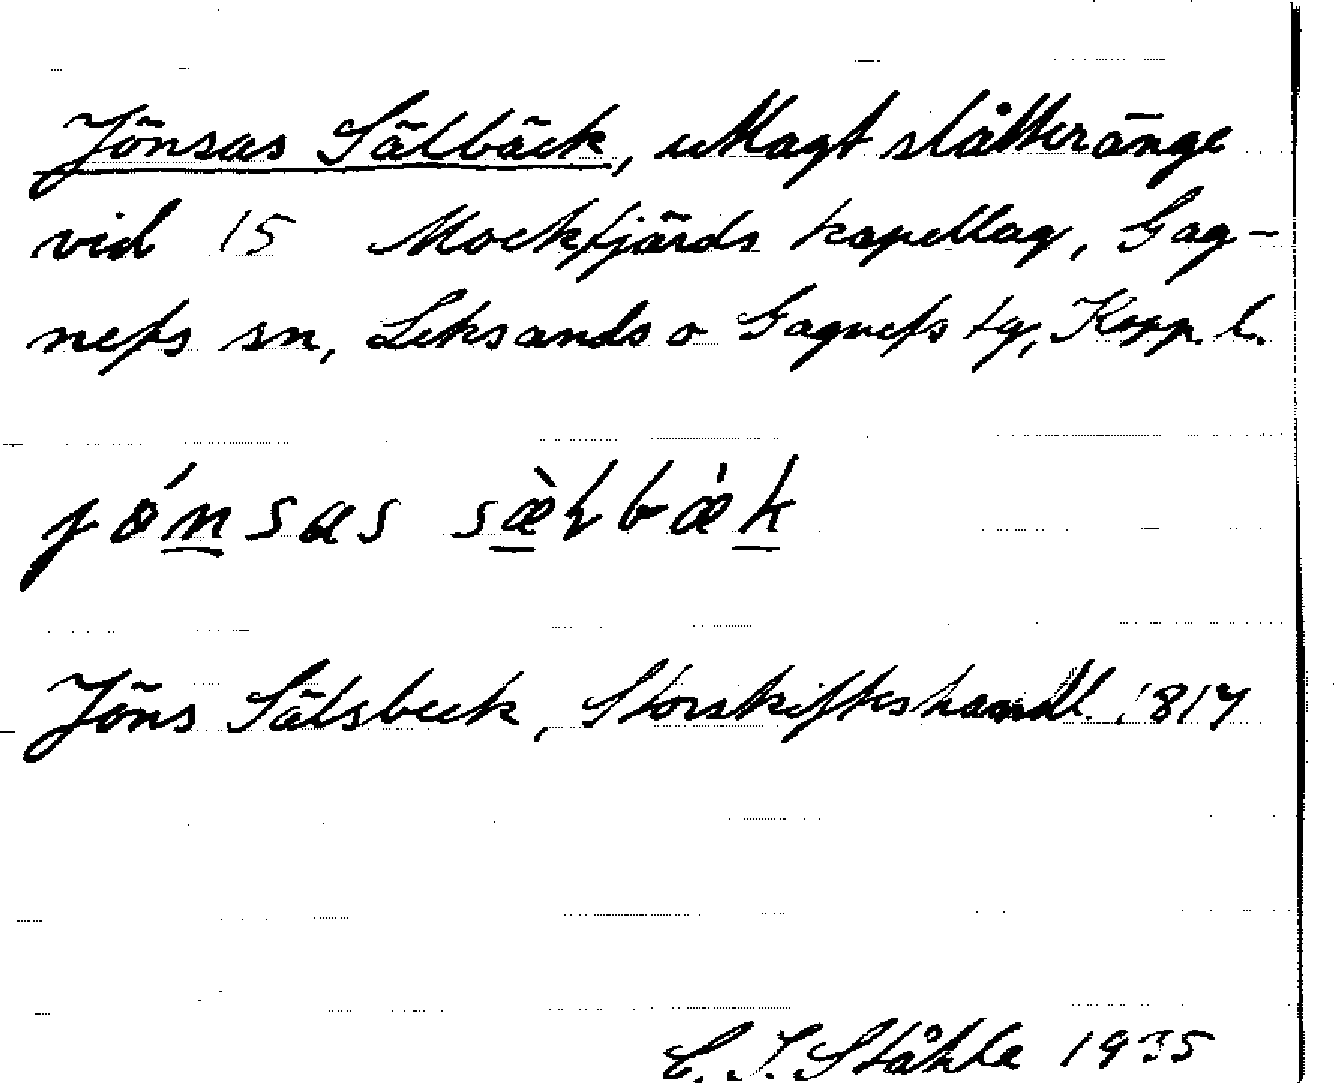 Jönsas Sälbäck, utlagt slåtteränge
vid 15 Mockfjärds kapellag, Gag-
nefs sn, Leksands o Gagnefs tg, Kopp. l.
jónsas sæ̀lbæ̀k
Jöns Sälsbeck, Storskifteshandl. 1817
C. I. Ståhle 1935